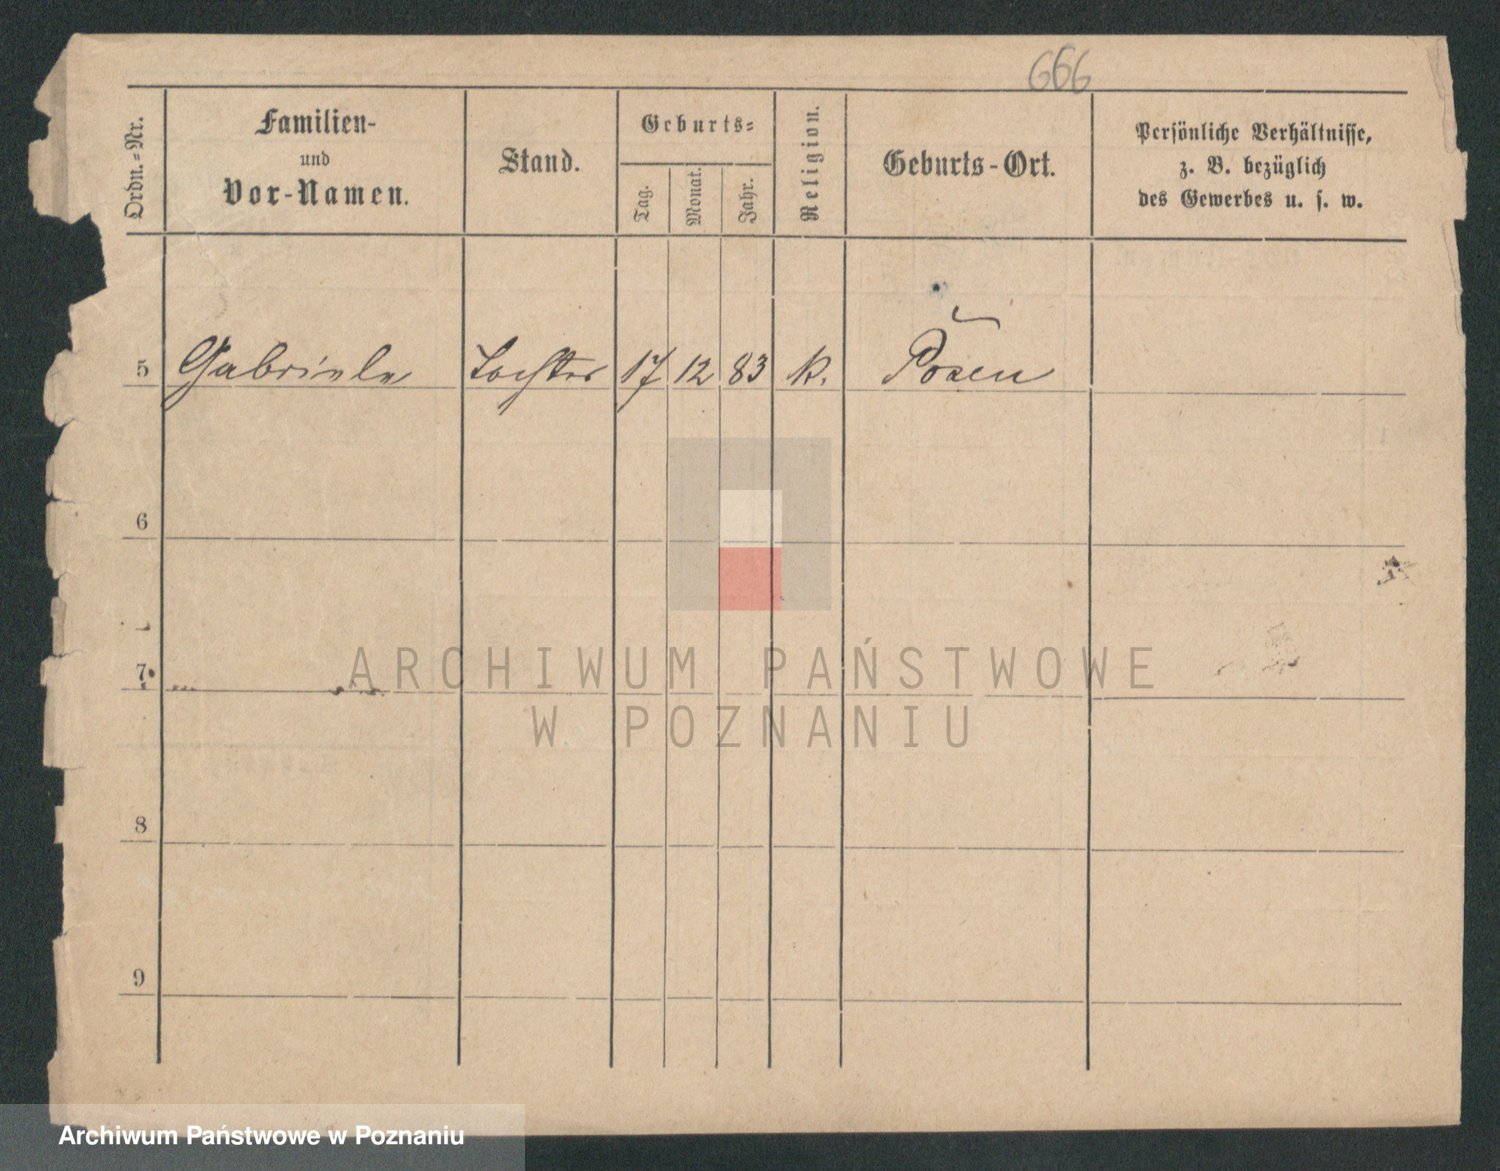 666
Ordn.-Nr.
Familien-
und
Vor-Namen.
Stand.
Geburts-
Tag.
Monat.
Jahr.
Religion.
Geburts-Ort.
Persönliche Verhältnisse,
z. B. bezüglich
des Gewerbes u. s. w.
5 Gabriele Tochter 17 12 83 k. Posen
6
7
8
9
ARCHIWUM PAŃSTWOWE
W POZNANIU
Archiwum Państwowe w Poznaniu